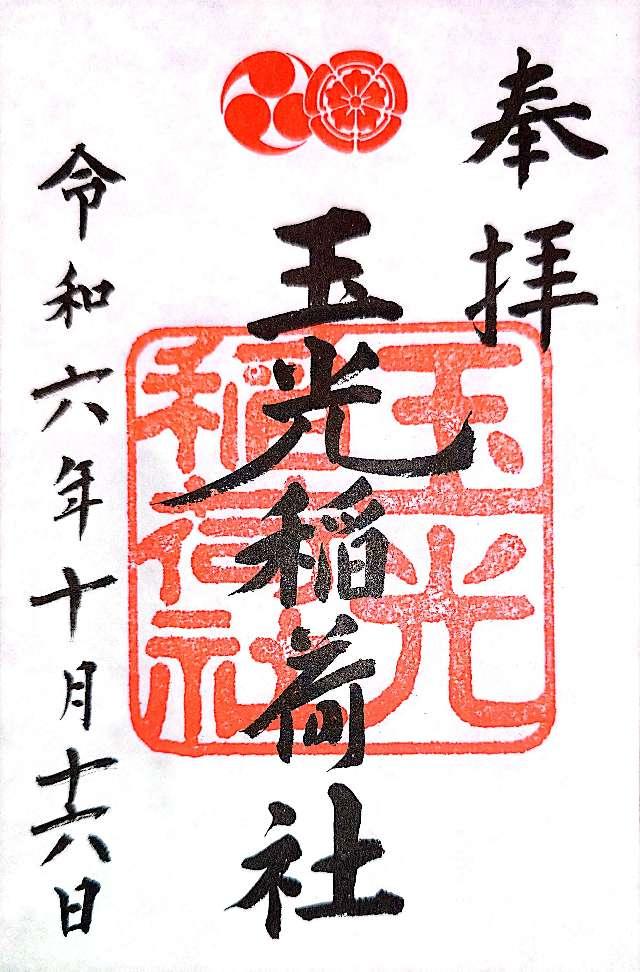 奉拝
玉光稲荷社
玉光
稲荷社
令和六年十月十六日